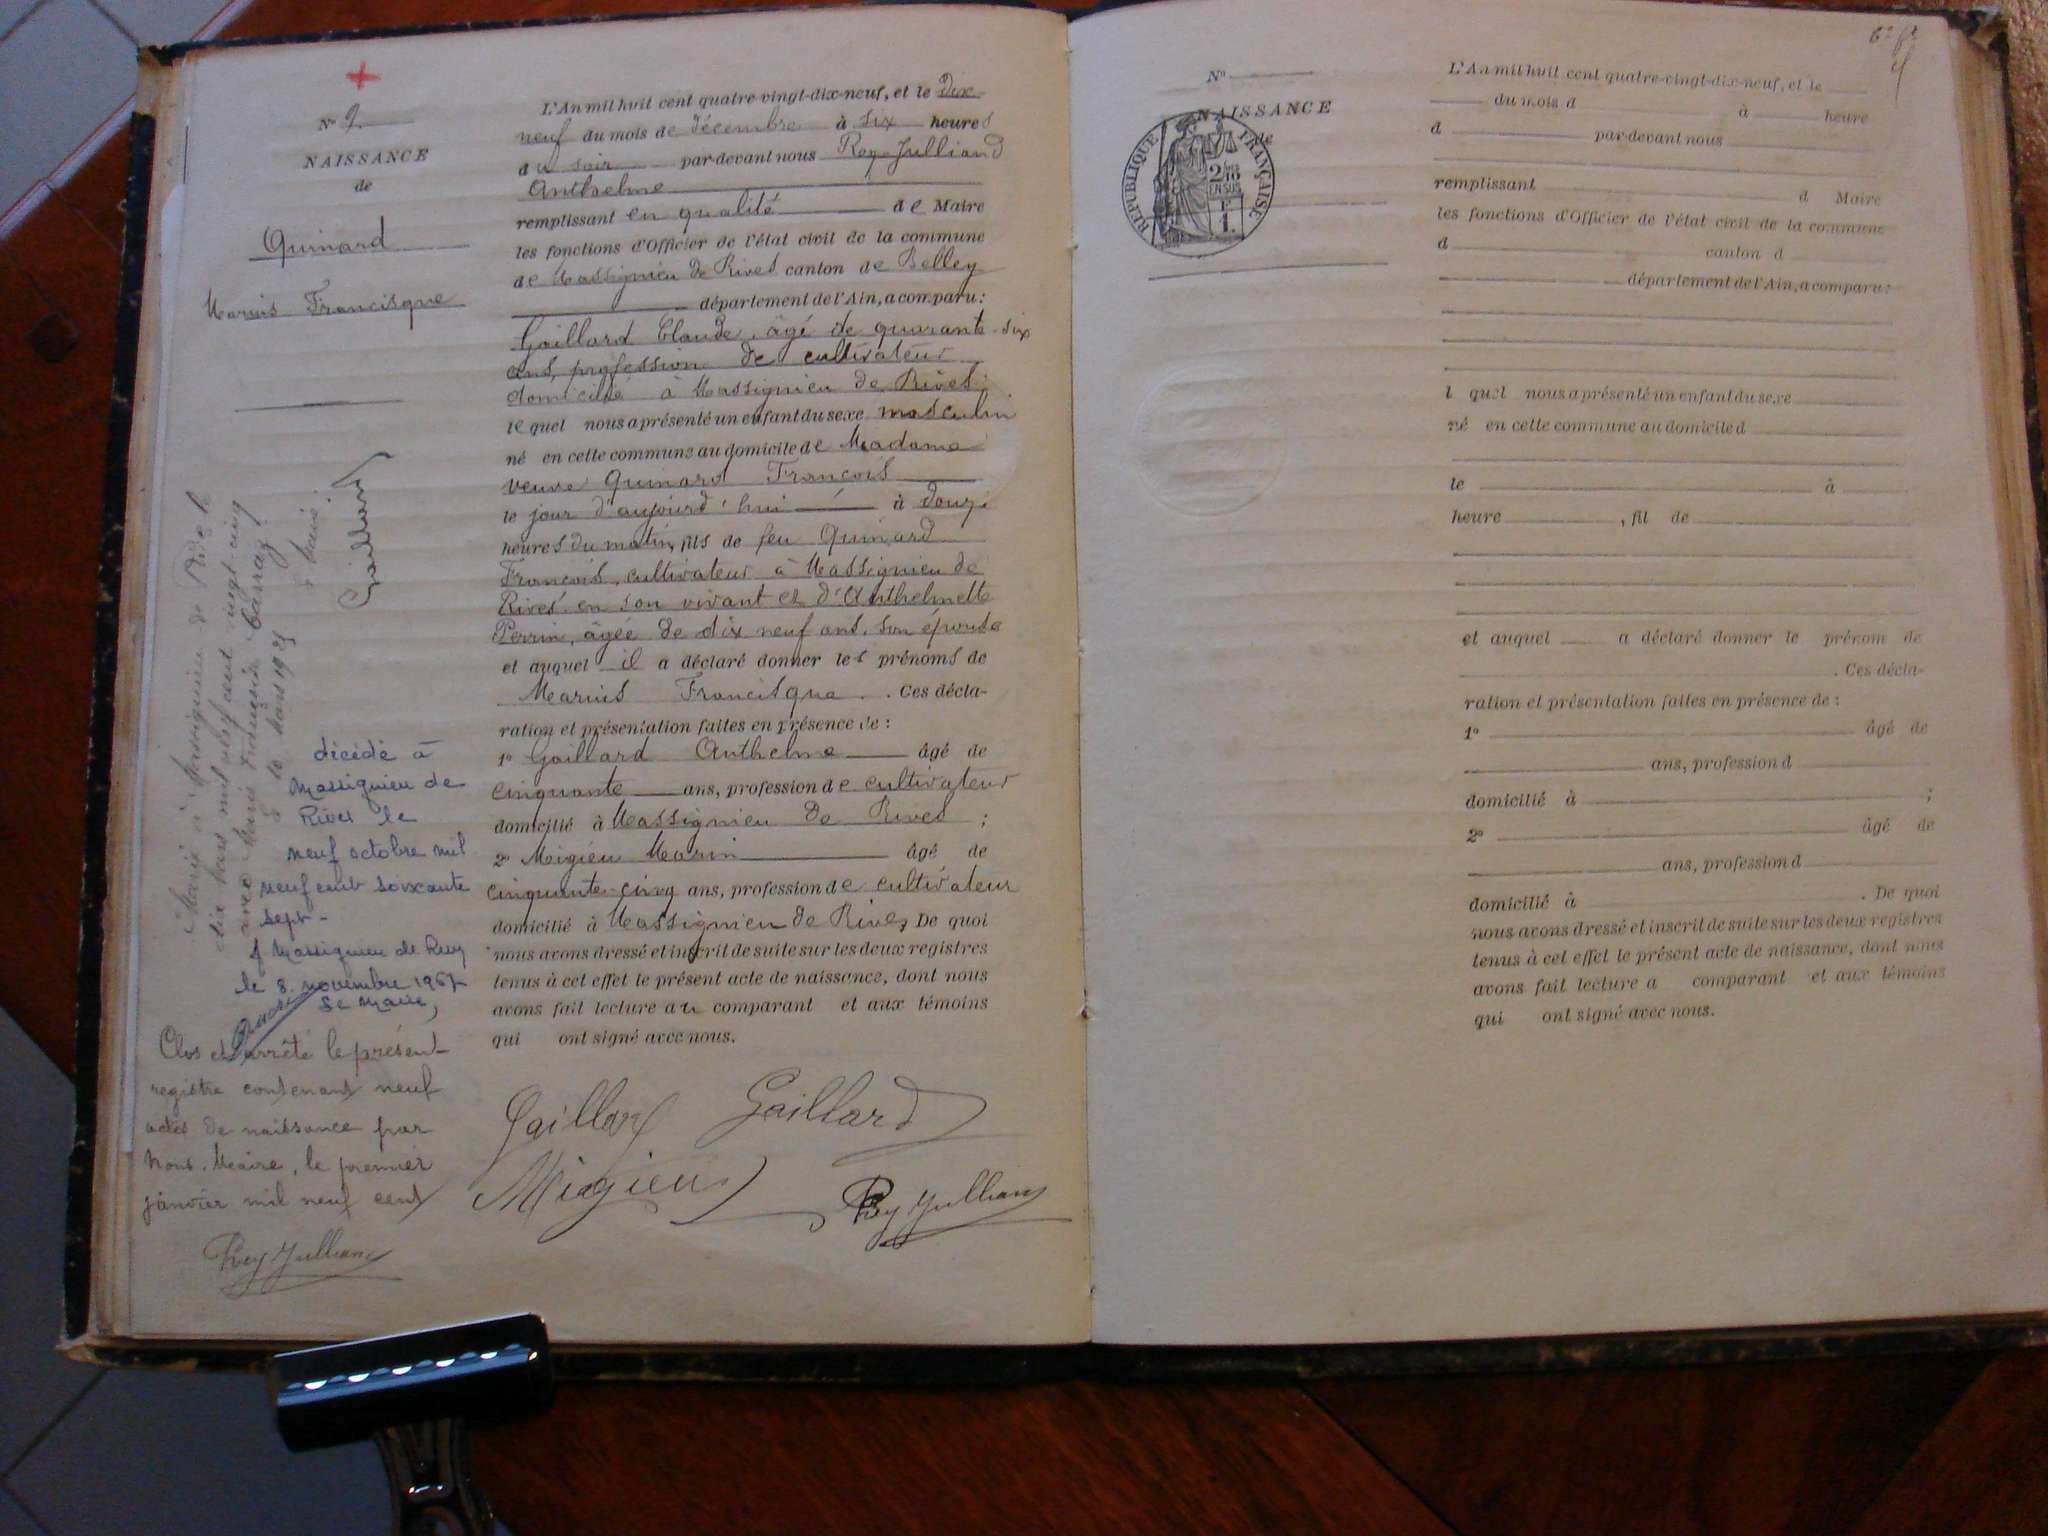 N° 9.
NAISSANCE
de
Quinard
Marius Francisque
L'An mil huit cent quatre-vingt-dix-neuf, et le Dix-
neuf du mois de décembre à six heures
du soir par-devant nous Rey-Julliand
Anthelme
remplissant en qualité de Maire
les fonctions d'Officier de l'état civil de la commune
de Massignieu de Rives canton de Belley
département de l'Ain, a comparu:
Gaillard Claude, âgé de quarante-six
ans, profession de cultivateur
domicilié à Massignieu de Rives
lequel nous a présenté un enfant du sexe masculin
né en cette commune au domicile de Madame
veuve Quinard François
le jour d'aujourd'hui à douze
heures du matin, fils de feu Quinard
François, cultivateur à Massignieu de
Rives en son vivant et d'Anthelmette
Perrin, âgée de dix neuf ans, son épouse
et auquel il a déclaré donner les prénoms de
Marius Francisque. Ces décla-
ration et présentation faites en présence de:
1° Gaillard Anthelme âgé de
cinquante ans, profession de cultivateur
domicilié à Massignieu de Rives ;
2° Migieu Marin âgé de
cinquante-cinq ans, profession de cultivateur
domicilié à Massignieu de Rives. De quoi
nous avons dressé et inscrit de suite sur les deux registres
tenus à cet effet le présent acte de naissance, dont nous
avons fait lecture au comparant et aux témoins
qui ont signé avec nous.
Gaillard Gaillard
Migieu Rey Jullian
Marié à Massignieu de Rives le
dix mars mil neuf cent vingt cinq
avec
le 10 mars 1925
Gaillard
décédé à
Massignieu de
Rives le
neuf octobre mil
neuf cent soixante
sept -
A Massignieu de Rives
le 8 novembre 1967
Le Maire,
Clos et arrêté le présent
registre contenant neuf
actes de naissance par
Nous, Maire, le premier
janvier mil neuf cent
Rey Jullian
N°
NAISSANCE
de
REPUBLIQUE FRANÇAISE
2/10
EN SUS
1F
L'An mil huit cent quatre-vingt-dix-neuf, et le
du mois d à heure
d par-devant nous
remplissant d Maire
les fonctions d'Officier de l'état civil de la commune
d canton d
département de l'Ain, a comparu:
l quel nous a présenté un enfant du sexe
né en cette commune au domicile d
le à
heure , fil de
et auquel a déclaré donner le prénom de
. Ces décla-
ration et présentation faites en présence de:
1° âgé de
ans, profession d
domicilié à ;
2° âgé de
ans, profession d
domicilié à . De quoi
nous avons dressé et inscrit de suite sur les deux registres
tenus à cet effet le présent acte de naissance, dont nous
avons fait lecture a comparant et aux témoins
qui ont signé avec nous.